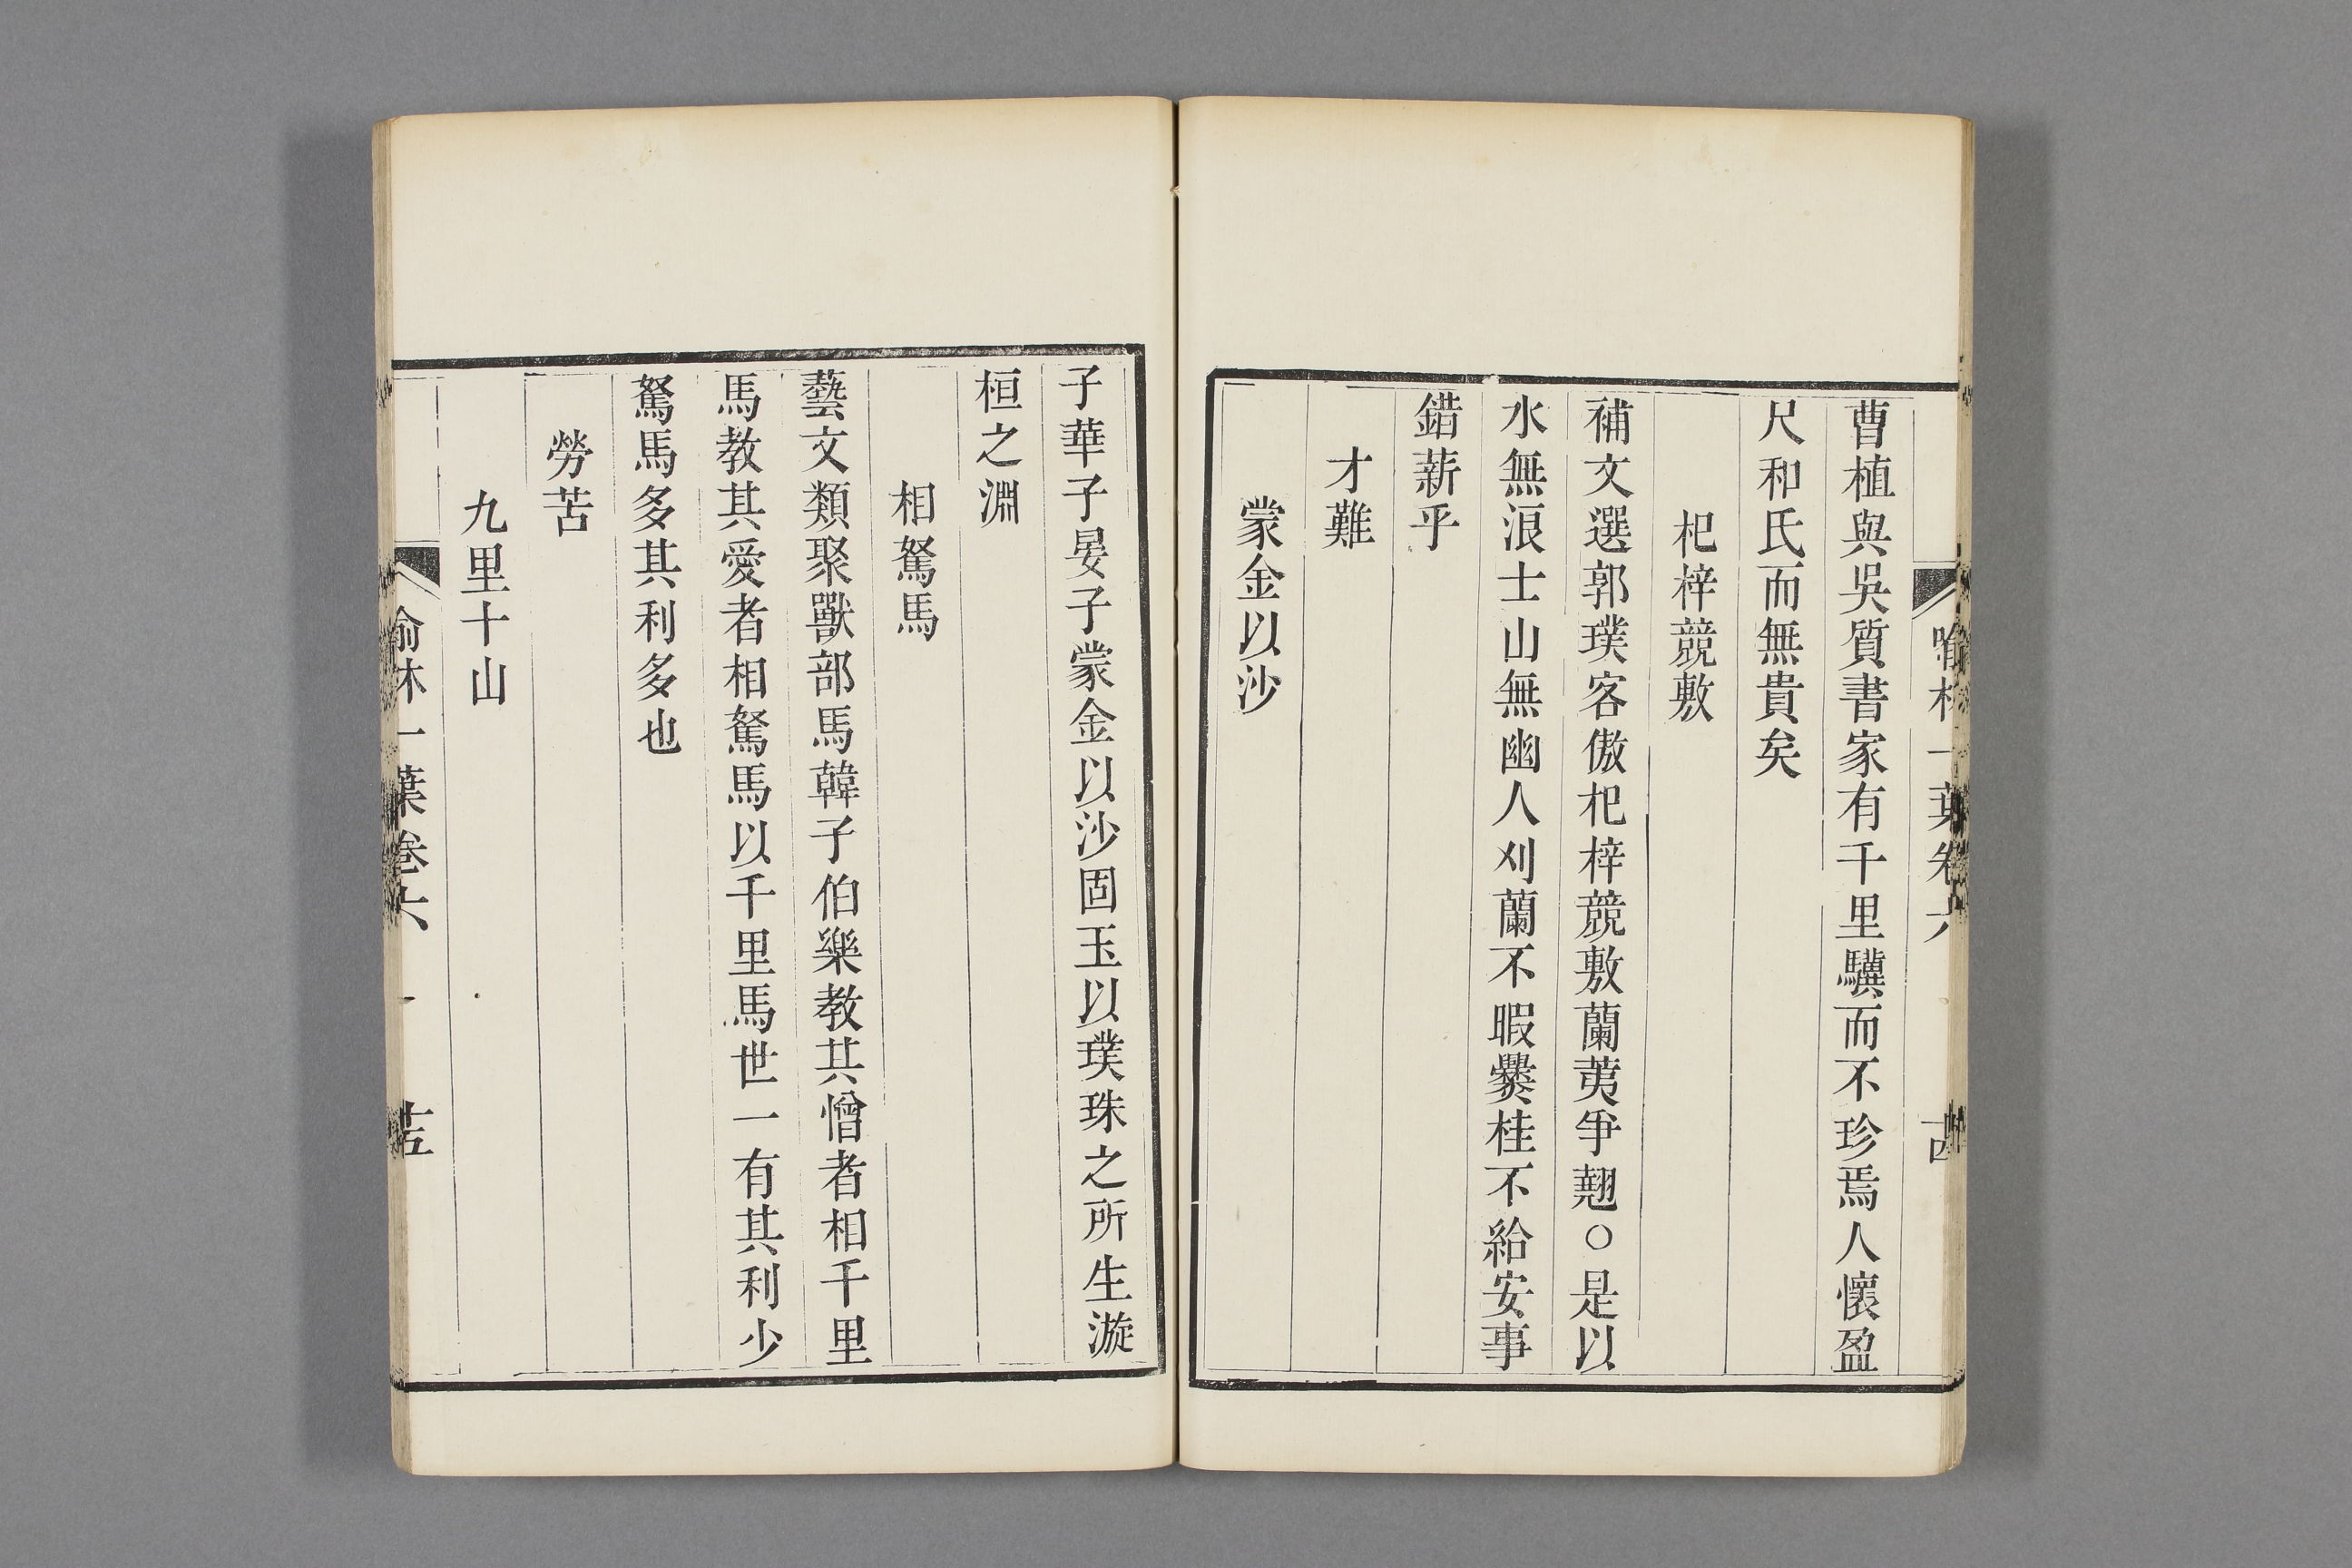 喻林一葉卷六
十四
曹植與吳質書家有千里驥而不珍焉人懷盈
尺和氏而無貴矣
杞梓競敷
補文選郭璞客傲杞梓競敷蘭荑爭翹○是以
水無浪士山無幽人刈蘭不暇爨桂不給安事
錯薪乎
才難
蒙金以沙
子華子晏子蒙金以沙固玉以璞珠之所生漩
桓之淵
相駑馬
藝文類聚獸部馬韓子伯樂教其憎者相千里
馬教其愛者相駑馬以千里馬世一有其利少
駑馬多其利多也
勞苦
九里十山
喻林一葉卷六
十五